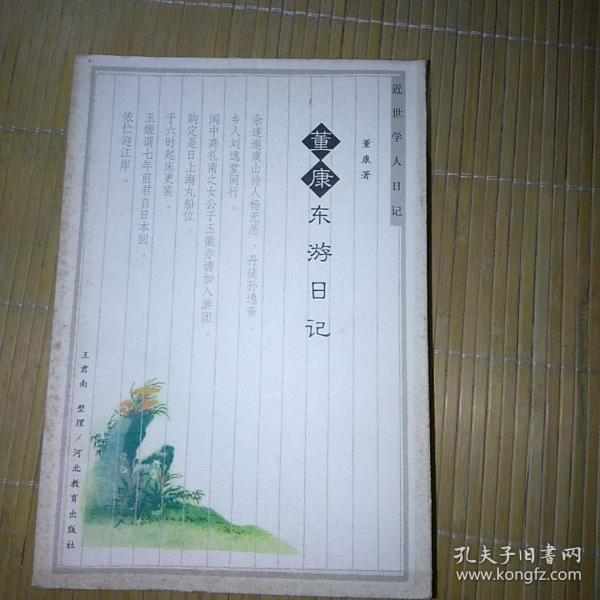 近世学人日记
董康著
董康东游日记
余遂邀虞山诗人杨无恙、丹徒孙逸斋、
乡人刘逸堂同行。
闽中龚礼南之女公子玉徽亦请加入游团。
购定是日上海丸船位。
于六时起床更装。
玉姬谓七年前君自日本回，
侬伫迎江岸。
王君南 整理/河北教育出版社
孔夫子旧书网
www.kongfz.com